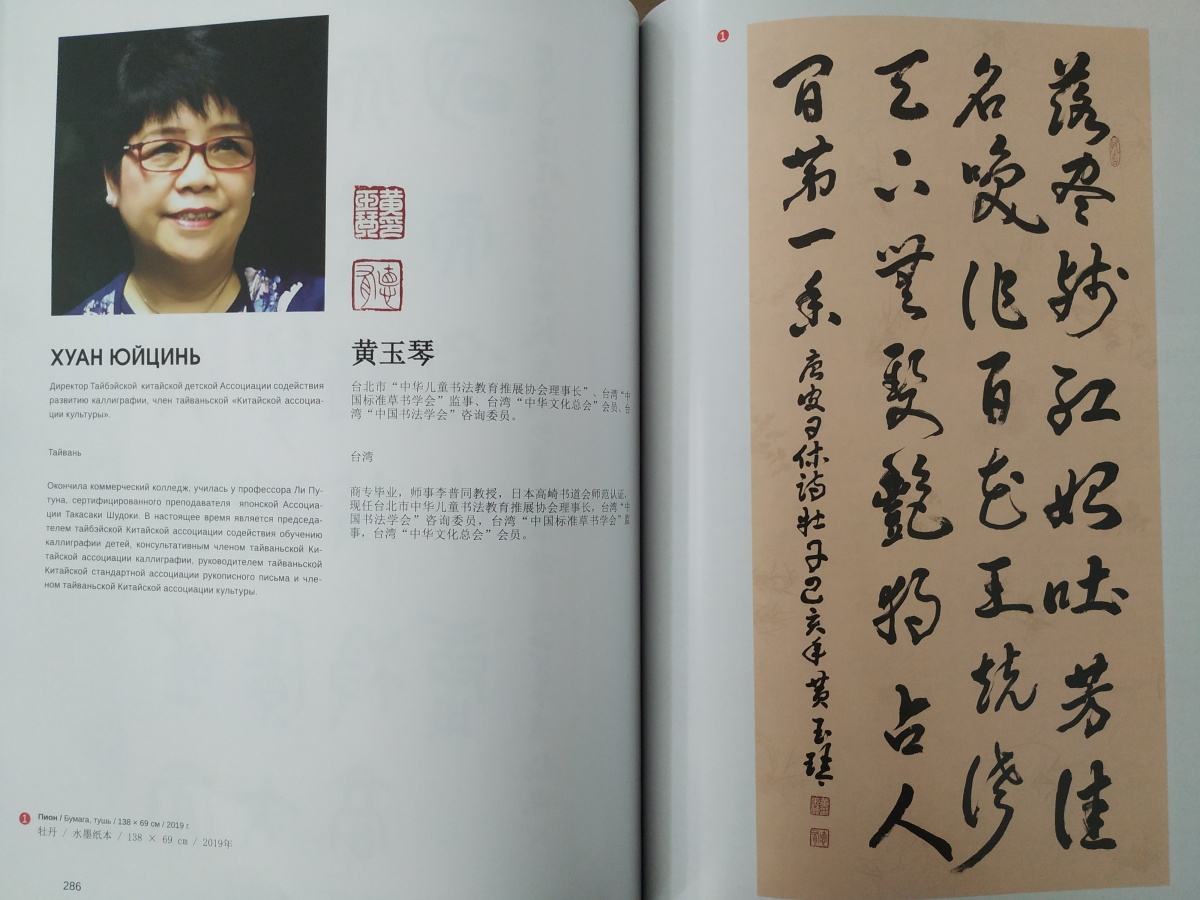 ХУАН ЮЙЦИНЬ
Директор Тайбэйской китайской детской Ассоциации содействия
развитию каллиграфии, член тайваньской «Китайской ассоциа-
ции культуры».
Тайвань
Окончила коммерческий колледж, училась у профессора Ли Пу-
туна, сертифицированного преподавателя японской Ассоциа-
ции Такасаки Шудоки. В настоящее время является председа-
телем тайбэйской Китайской ассоциации содействия обучению
каллиграфии детей, консультативным членом тайваньской Ки-
тайской ассоциации каллиграфии, руководителем тайваньской
Китайской стандартной ассоциации рукописного письма и чле-
ном тайваньской Китайской ассоциации культуры.
黄玉琴
台北市“中华儿童书法教育推展协会理事长”、台湾“中
国标准草书学会”监事、台湾“中华文化总会”会员、台
湾“中国书法学会”咨询委员。
台湾
商专毕业，师事李普同教授，日本高崎书道会师范认证，
现任台北市中华儿童书法教育推展协会理事长，台湾“中
国书法学会”咨询委员，台湾“中国标准草书学会”监
事，台湾“中华文化总会”会员。
1 Пион / Бумага, тушь / 138 × 69 см / 2019 г.
牡丹 / 水墨纸本 / 138 × 69 cm / 2019年
286
1
落盡殘紅始吐芳佳
名喚作百花王競誇
天下無雙艷獨占人
間第一香
唐皮日休詩牡丹己亥年黃玉琴